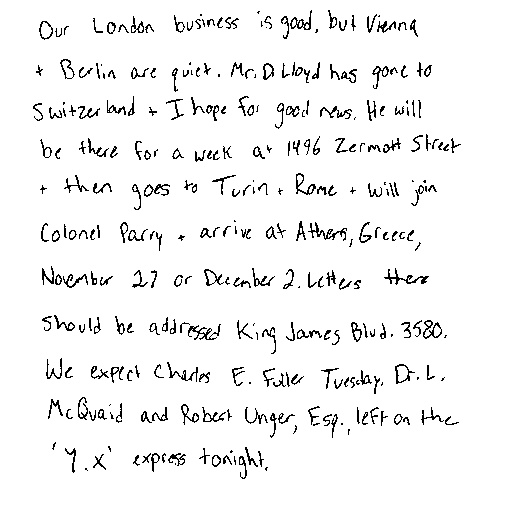 Our London business is good, but Vienna
+ Berlin are quiet. Mr. D. Lloyd has gone to
Switzerland + I hope for good news. He will
be there for a week at 1496 Zermott Street
+ then goes to Turin + Rome + will join
Colonel Parry + arrive at Athens, Greece,
November 27 or December 2. Letters there
should be addressed King James Blvd. 3580.
We expect Charles E. Fuller Tuesday. Dr. L.
McQuaid and Robert Unger, Esq., left on the
'Y.X' express tonight.